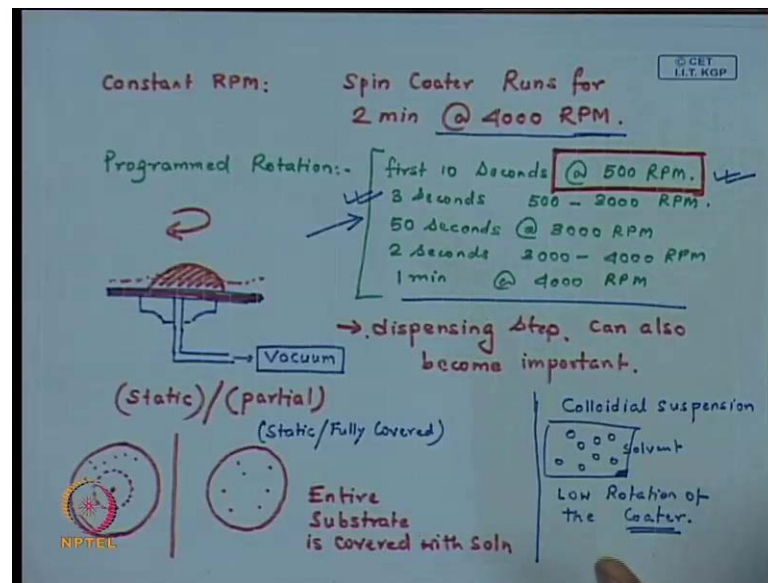 © CET
I.I.T. KGP
Constant RPM: Spin Coater Runs for
2 min @ 4000 RPM.
Programmed Rotation:-
first 10 Seconds @ 500 RPM.
3 Seconds 500 - 3000 RPM.
50 Seconds @ 3000 RPM
2 Seconds 3000 - 4000 RPM
1 min @ 4000 RPM
Vacuum
→ dispensing Step. Can also
become important.
(Static)/(partial)
(Static/Fully Covered)
Entire
Substrate
is covered with Soln
Colloidial Suspension
Solvent
Low Rotation of
the Coater.
NPTEL